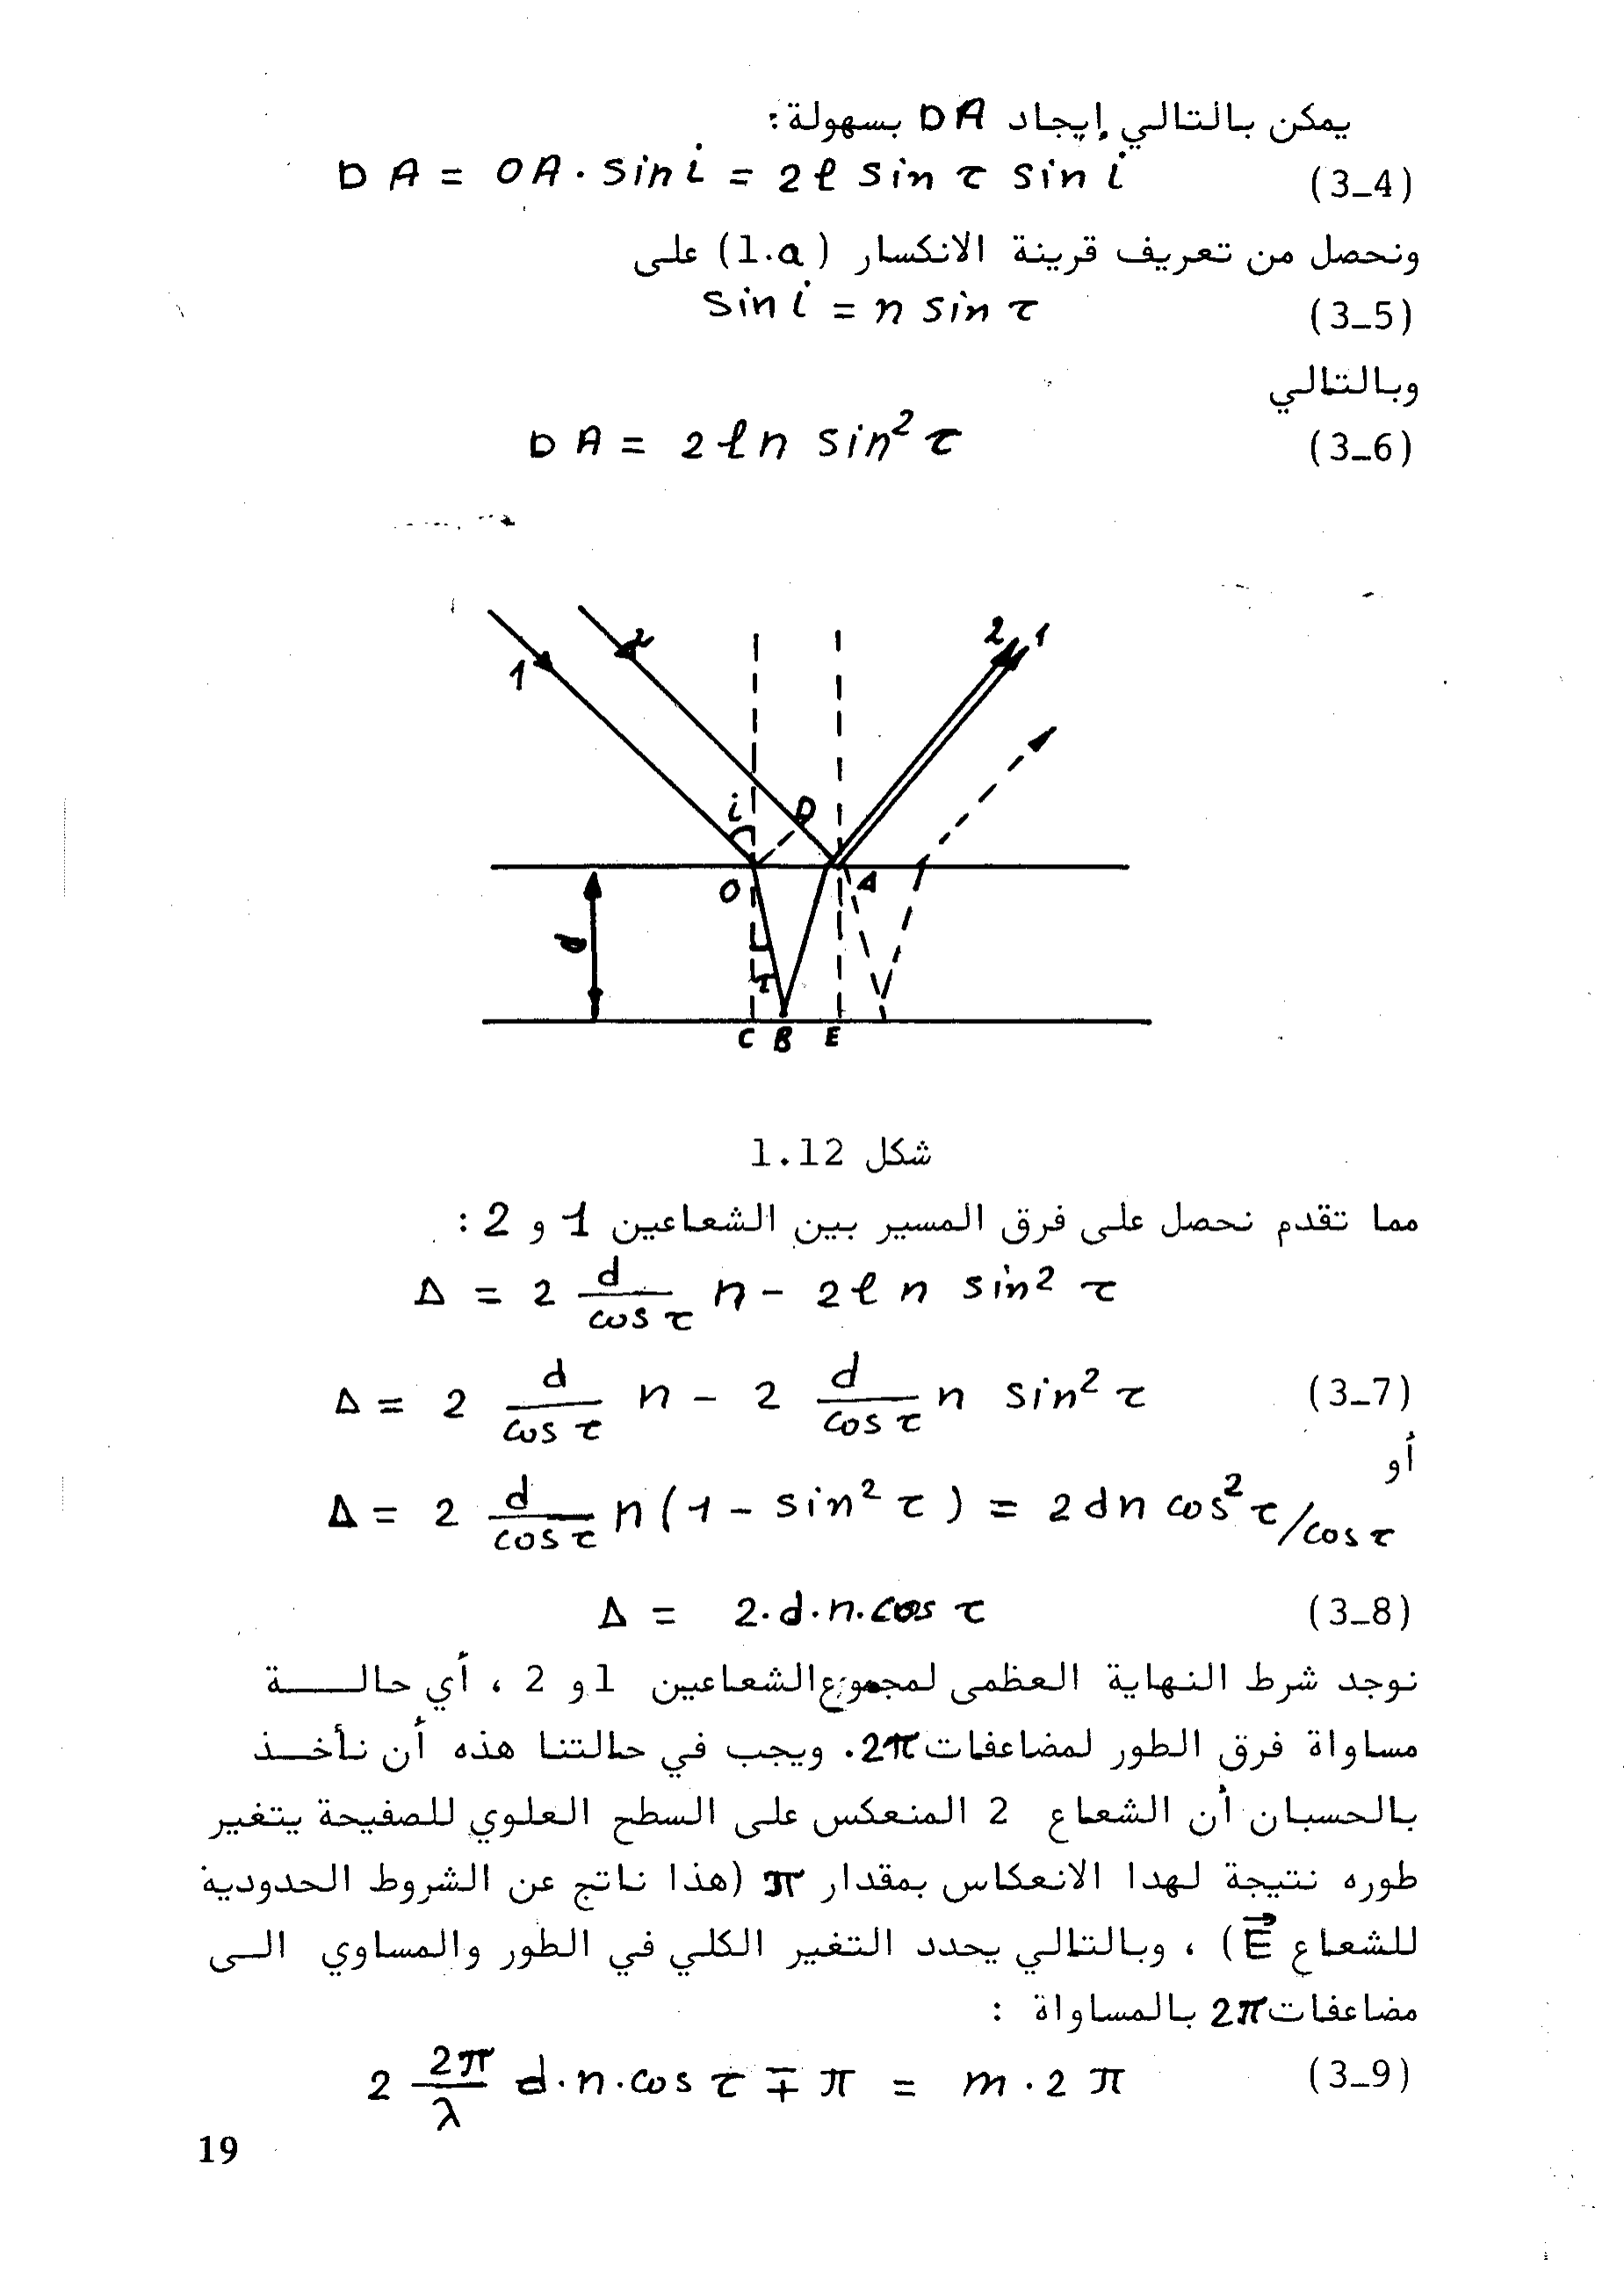 يمكن بالتالي إيجاد DA بسهولة:
DA = OA . sin i = 2ℓ sin τ sin i (3_4)
ونحصل من تعريف قرينة الانكسار (1.a) على
sin i = n sin τ (3_5)
وبالتالي
DA = 2ℓn sin² τ (3_6)
1 2 2 1
i D
O A
d
τ
C B E
شكل 1.12
مما تقدم نحصل على فرق المسير بين الشعاعين 1 و 2 :
Δ = 2 d/cos τ n - 2ℓ n sin² τ
Δ = 2 d/cos τ n - 2 d/cos τ n sin² τ (3_7)
أو
Δ = 2 d/cos τ n (1 - sin² τ) = 2dn cos² τ/cos τ
Δ = 2.d.n.cos τ (3_8)
نوجد شرط النهاية العظمى لمجموع الشعاعين 1 و 2 ، أي حالـــة
مساواة فرق الطور لمضاعفات 2π. ويجب في حالتنا هذه أن نأخـذ
بالحسبان أن الشعاع 2 المنعكس على السطح العلوي للصفيحة يتغير
طوره نتيجة لهدا الانعكاس بمقدار π (هذا ناتج عن الشروط الحدودية
للشعاع E⃗) ، وبالتالي يحدد التغير الكلي في الطور والمساوي الـى
مضاعفات 2π بالمساواة :
2 2π/λ d.n.cos τ ∓ π = m . 2 π (3_9)
19